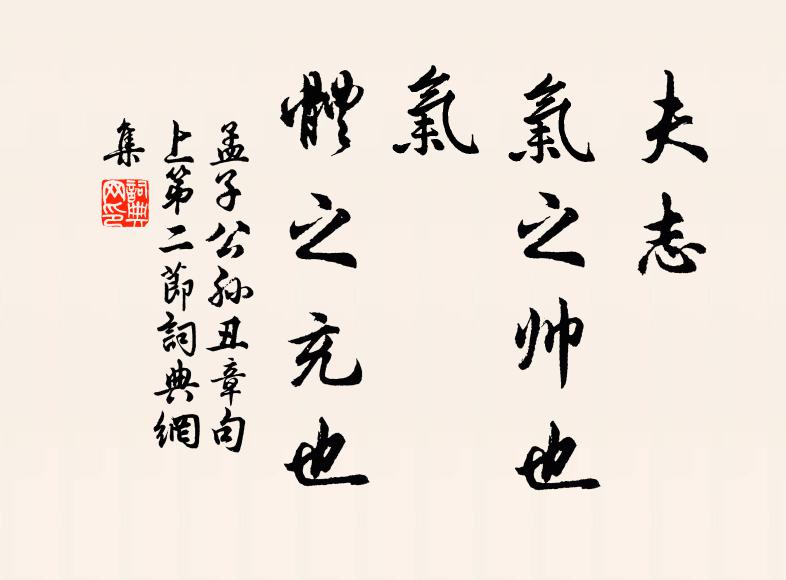 夫志
氣之帅也
氣
體之充也
孟子公孙丑章句
上第二節詞典網
集
詞典
网印